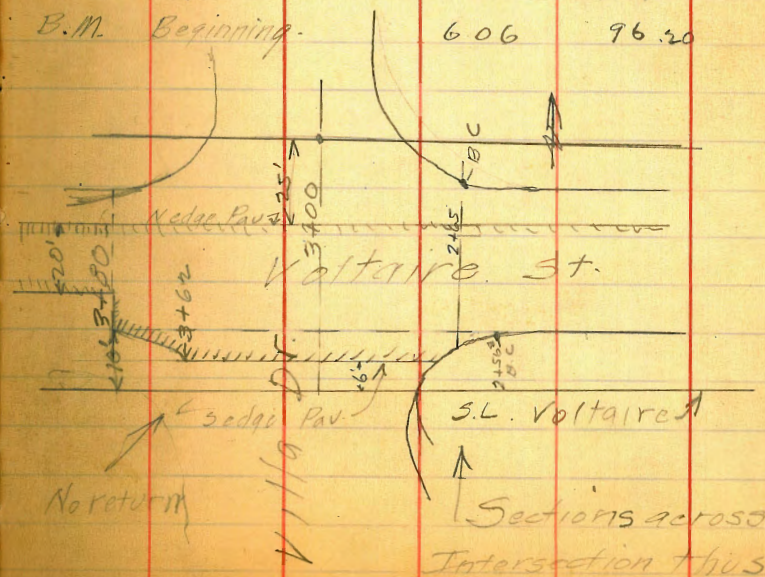 B.M. Beginning. 6 06 96.20
BC
25'
N edge Pav.
3+00
2+65
20'
Voltaire St.
3+80
3+62
10'
6'
2+56
BC
S edge Pav.
S.L. Voltaire
Villa Dr.
No return
Sections across
Intersection thus